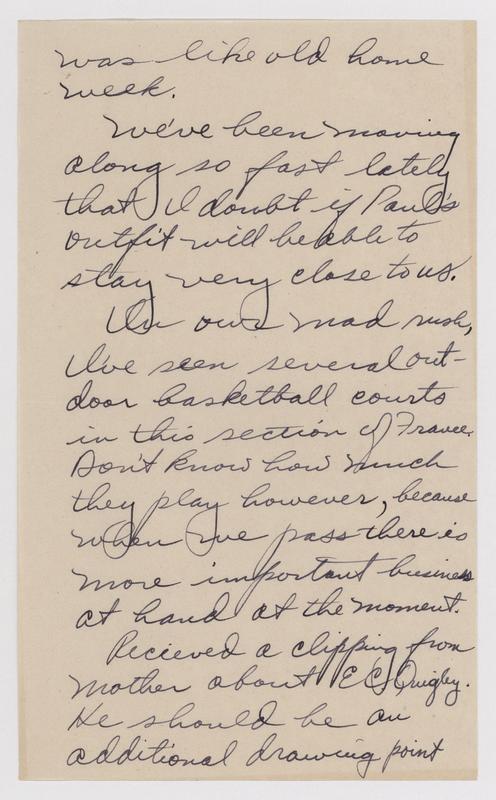 was like old home
week.
We've been moving
along so fast lately
that I doubt if Paul's
outfit will be able to
stay very close to us.
In our mad rush,
I've seen several out-
door basketball courts
in this section of France.
Don't know how much
they play however, because
when we pass there is
more important business
at hand at the moment.
Recieved a clipping from
Mother about E C Quigley.
He should be an
additional drawing point